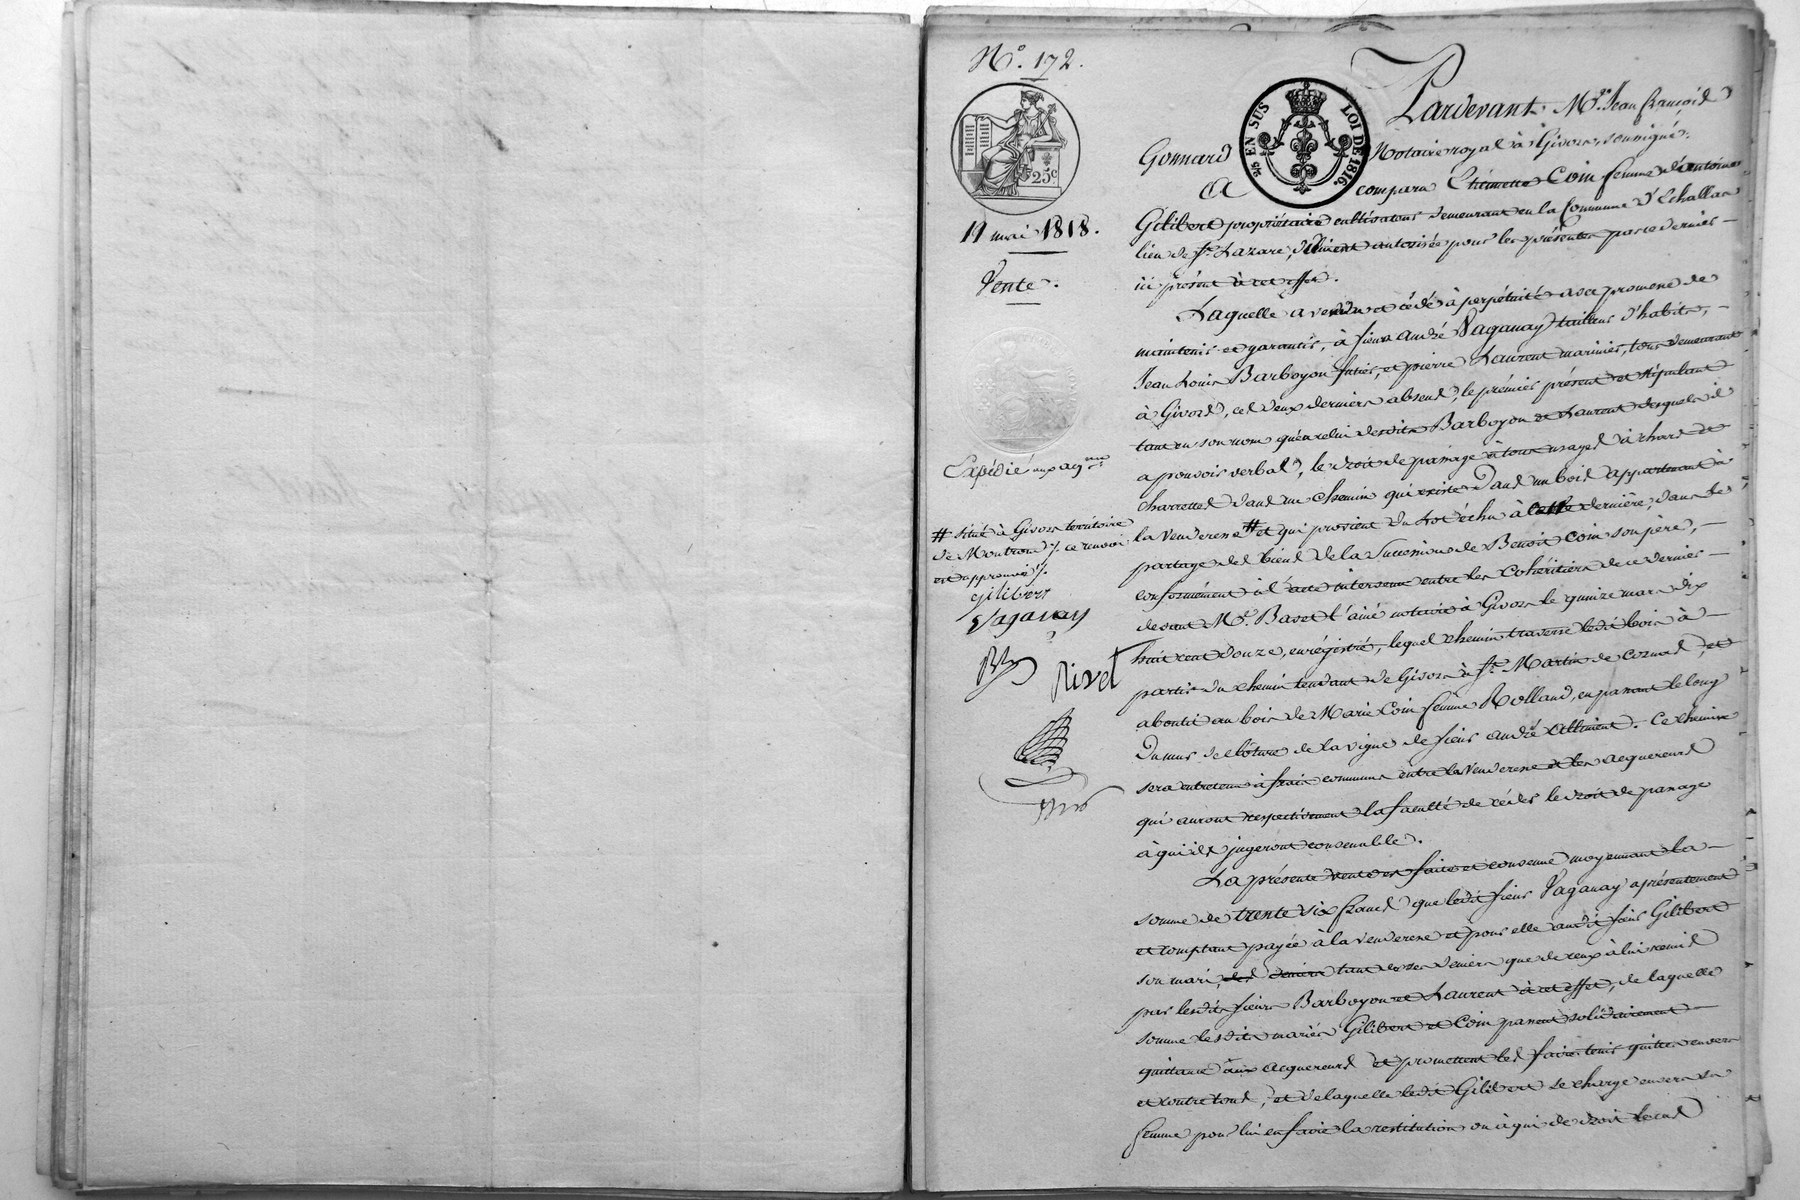 N.° 172.
25c
5/5 EN SUS LOI DE 1816.
19 mai 1818.
Vente.
Expédié aux aq.rrs
# situé à Givors territoire
de Montrond ce renvoi
est approuvé
Gilibert
Vaganay
Rivel
Pardevant M.e Jean françois
Gonnard Notaire royal à Givors, soussigné.
A comparu Etiennette Coin femme d'antoine
Gilibert propriétaire cultivateur demeurant en la Commune d'Echallas
lieu de St. Lazare, dûment autorisée pour les présentes par ce dernier
ici présent à cet effet.
Laquelle a vendu et cédé à perpétuité avec promesse de
maintenir et garantir, à sieurs andré Vaganay tailleur d'habits,
Jean Louis Barboyon, et pierre Laurent marinier, tous demeurant
à Givors, ces deux derniers absens, le prémier présent et stipulant
tant en son nom qu'en celui desdits Barboyon et Laurent desquels il
a pouvoir verbal, le droit de passage à tous usages à chars et
charrettes dans un chemin qui existe dans un bois appartenant à
la Venderesse # et qui provient du Lot échu à cette dernière, dans le
partage des biens de la Succession de Benoit Coin son père,
conformément à l'acte intervenu entre les Cohéritiers de ce dernier
devant M.e Basset l'ainé notaire à Givors le quinze mars dix
huit cent douze, enrégistré, lequel chemin traverse ledit bois à
partir du chemin tendant de Givors à St. Martin de Cornas, et
aboutit au bois de Marie Coin femme Rolland, en passant le long
du mur de clôture de la vigne de sieur andré Alliment. Ce chemin
sera entretenu à frais communs entre la Venderesse et les acquereurs
qui auront respectivement la faculté de céder le droit de passage
à qui ils jugeront convenable.
La présente vente est faite et convenue moyennant la
somme de trente six francs que ledit sieur Vaganay a présentement
et comptant payée à la venderesse et pour elle audit sieur Gilibert
son mari, des deniers tant de ses deniers que de ceux à lui remis
par lesdits sieurs Barboyon et Laurent à cet effet, de laquelle
somme lesdits mariés Gilibert et Coin passent solidairement
quittance aux acquereurs et promettent les faire tenir quittes envers
et contre tous, et de laquelle ledit Gilibert se charge envers sa
femme pour lui en faire la restitution ou à qui de droit le cas